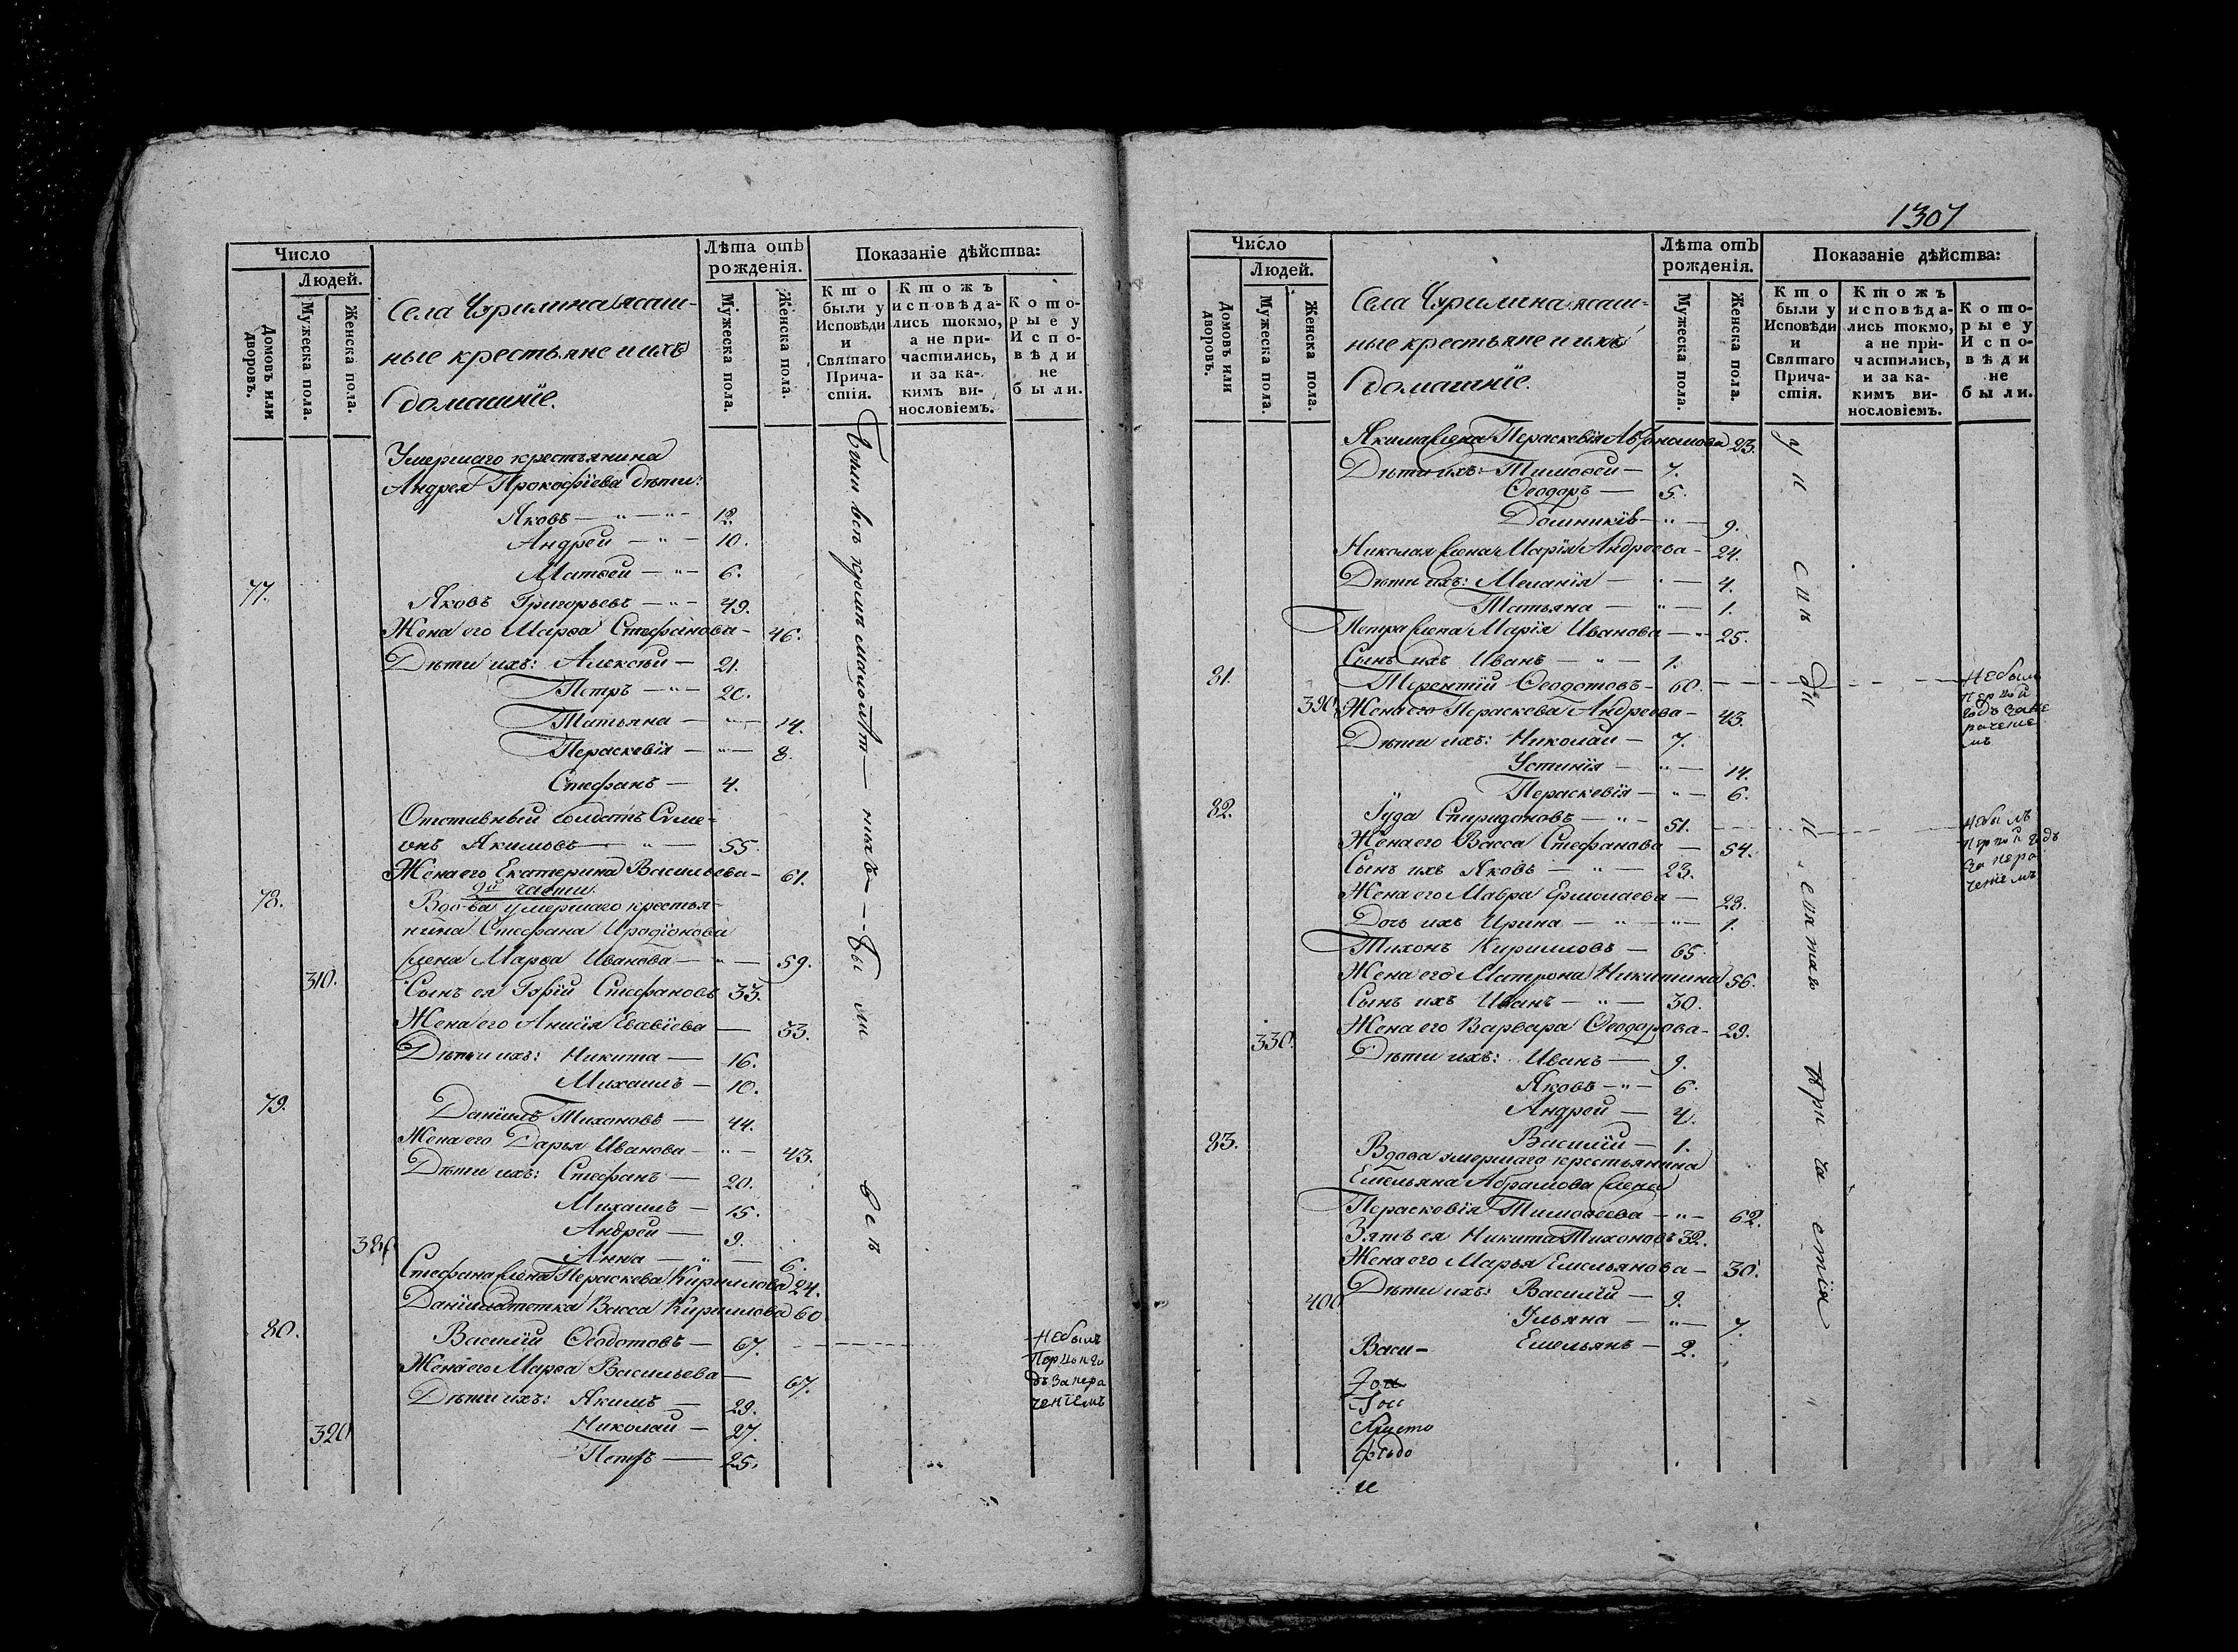 Число
Людей.
Домовъ или дворовъ.
Мужеска пола.
Женска пола.
Села Чурилина ясаш-
ные крестьяне и ихъ
домашнїе.
Лѣта отъ рожденія.
Мужеска пола.
Женска пола.
Показаніе дѣйства:
Кто были у Исповѣди и Святаго Причастія.
Ктожъ исповѣдались токмо, а не причастились, и за какимъ винословіемъ.
Которые у Исповѣди не были.
Умершаго крестьянина
Андрея Прокофїева дѣти:
Яковъ — " — " — 12.
Андрей — " — 10.
Матвей — " — 6.
77. Яковъ Григорьевъ — " — 49.
Жена его Марѳа Стефанова — 46.
Дѣти ихъ: Алексѣй — 21.
Петръ — " — 20.
Татьяна — " — 14.
Пераскевїя — " — 8.
Стефанъ — 4.
Отставный солдатъ Симе-
онъ Якимовъ — " — 55.
Жена его Екатерина Васильева — 61.
2й части.
78. Вдова умершаго крестья-
нина Стефана Иродїонова
жена Марѳа Иванова — " — 59.
310. Сынъ ея Гурїй Стефановъ 33.
Жена его Анисїя Евавїева — 33.
Дѣти ихъ: Никита — 16.
Михаилъ — 10.
79. Данїилъ Тихоновъ — 44.
Жена его Дарья Иванова — " — 43.
Дѣти ихъ: Стефанъ — 20.
Михаилъ — 15.
Андрей — 9.
Анна — " — 6.
Стефана жена Пераскева Кириллова 24.
Данїила тетка Васса Кириллова 60.
80. Василїй Ѳеодотовъ — 67. Небылъ
Жена его Марѳа Васильева — 67.
Дѣти ихъ: Якимъ — 29.
320 Николай — 27.
Петръ — 25.
Были всѣ кромѣ малолѣт — ныхъ — Бы ли всѣ
1307
Число
Людей.
Домовъ или дворовъ.
Мужеска пола.
Женска пола.
Села Чурилина ясаш-
ные крестьяне и ихъ
домашнїе.
Лѣта отъ рожденія.
Мужеска пола.
Женска пола.
Показаніе дѣйства:
Кто были у Исповѣди и Святаго Причастія.
Ктожъ исповѣдались токмо, а не причастились, и за какимъ винословіемъ.
Которые у Исповѣди не были.
Якима жена Пераскевїя 23.
Дѣти ихъ: Тимоѳей — 7.
Ѳеодоръ — 5.
9.
Николая жена Марїя Андреева — 24.
Дѣти ихъ: Меланїя — " — 4.
Татьяна — " — 1.
Петра жена Марїя Иванова — " 25.
Сынъ ихъ Иванъ — " — 1.
81. Терентїй Ѳеодотовъ — 60. Небылъ
390. Жена его Пераскева Андреева — 43.
Дѣти ихъ: Николай — 7.
Устинїя — " — 14.
Пераскевїя — " — 6.
82. Іуда Спиридоновъ — " — 51. Небылъ
Жена его Васса Стефанова — 54.
Сынъ ихъ Яковъ — " — 23.
Жена его Мавра Ермолаева — 28.
Дочь ихъ Ирина — " — " — 1.
Тихонъ Кирилловъ — 65.
Жена его Матрона Никитина 56.
Сынъ ихъ Иванъ — " — 30.
Жена его Варвара Ѳеодорова — 29.
330. Дѣти ихъ: Иванъ — 9.
Яковъ — " — 6.
Андрей — 4.
Василїй — 1.
83. Вдова умершаго крестьянина
Емельяна Абрамова жена
Пераскевїя Тимоѳеева — " — 62.
Зять ея Никита Тихоновъ 32.
Жена его Марья Емельянова — 30.
Дѣти ихъ: Василїй — 9.
400 Ульяна — " — 7.
Емельянъ — 2.
Васи-
Христо
и
у исповѣди и святаго причастїя